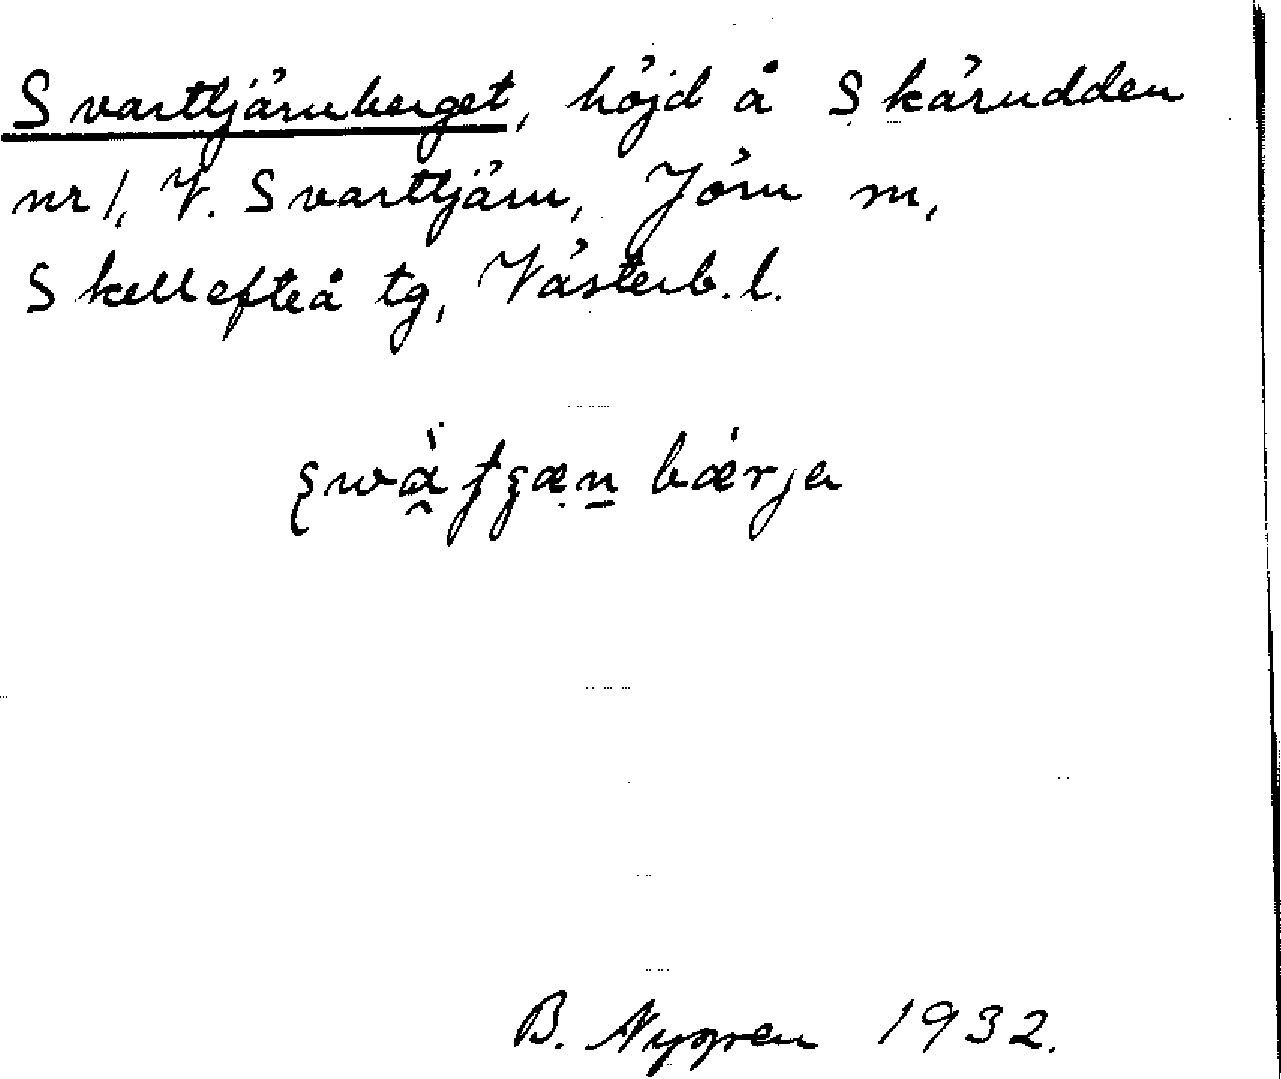 Svarttjärnberget, höjd å Skärudden
nr 1, V. Svarttjärn, Jörn sn,
Skellefteå tg, Västerb. l.
bǽrja
B. Nygren 1932.